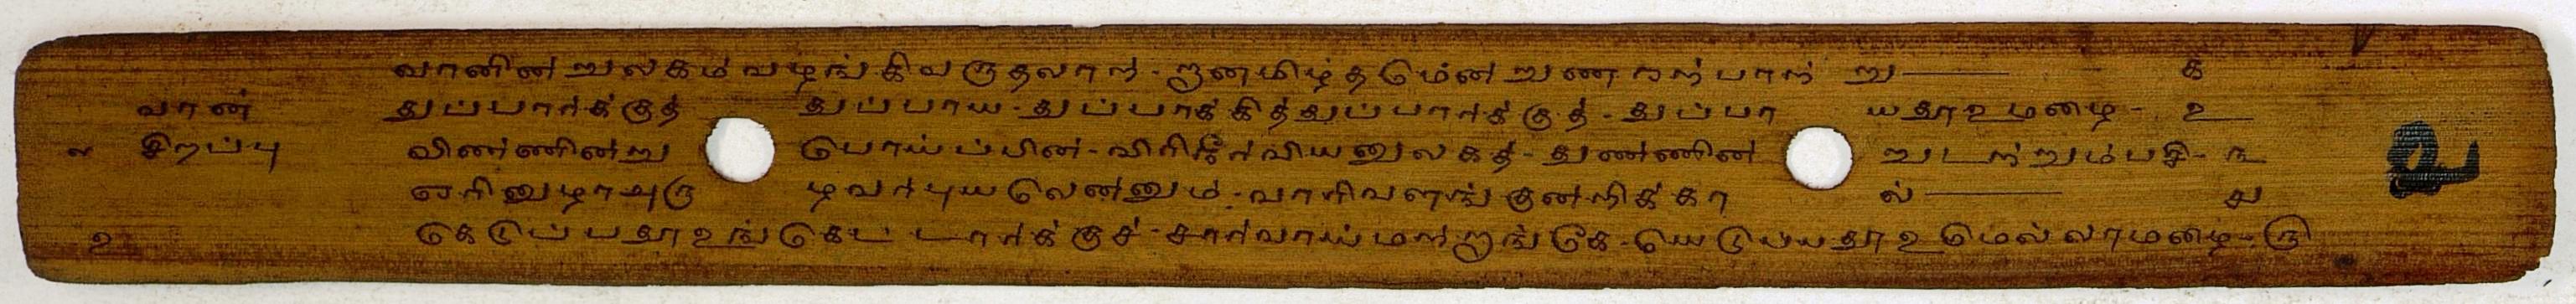 வானின் றுலகம் வழங்கிவருதலாற்- றானமிழ்தமென் றுணரற்பாற் று—— ௧
வான் துப்பார்க்குத் துப்பாய-துப்பாக்கித்துப்பார்க்குத்-துப்பா யதூஉமழை- ௨
சிறப்பு விண்ணின்று பொய்ப்பின்-விரிநீர்வியனுலகத்-துண்ணின் றுடற்றும்பசி- ௩
ஏரினுழாஅரு ழவர்புயலென்னும்-வாரிவளங்குன்றிக்கா ல்—— ௪
௨ கெடுப்பதூஉங்கெட் டார்க்குச்-சார்வாய்மற்றாங்கே-யெடுப்பதூஉ மெல்லாமழை-௫